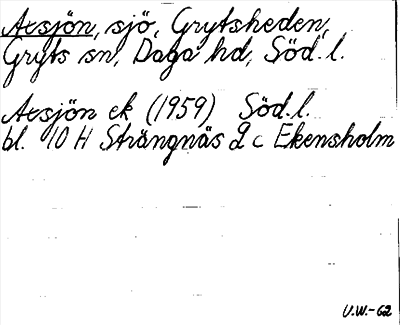 Acsjön, sjö, Grytsheden,
Gryts sn, Daga hd, Söd. l.
Acsjön ek (1959) Söd. l.
bl. 10 H Strängnäs 2 c Ekensholm
U.W.-62